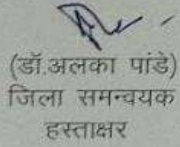 (डॉ.अलका पांडे)
जिला समन्वयक
हस्ताक्षर